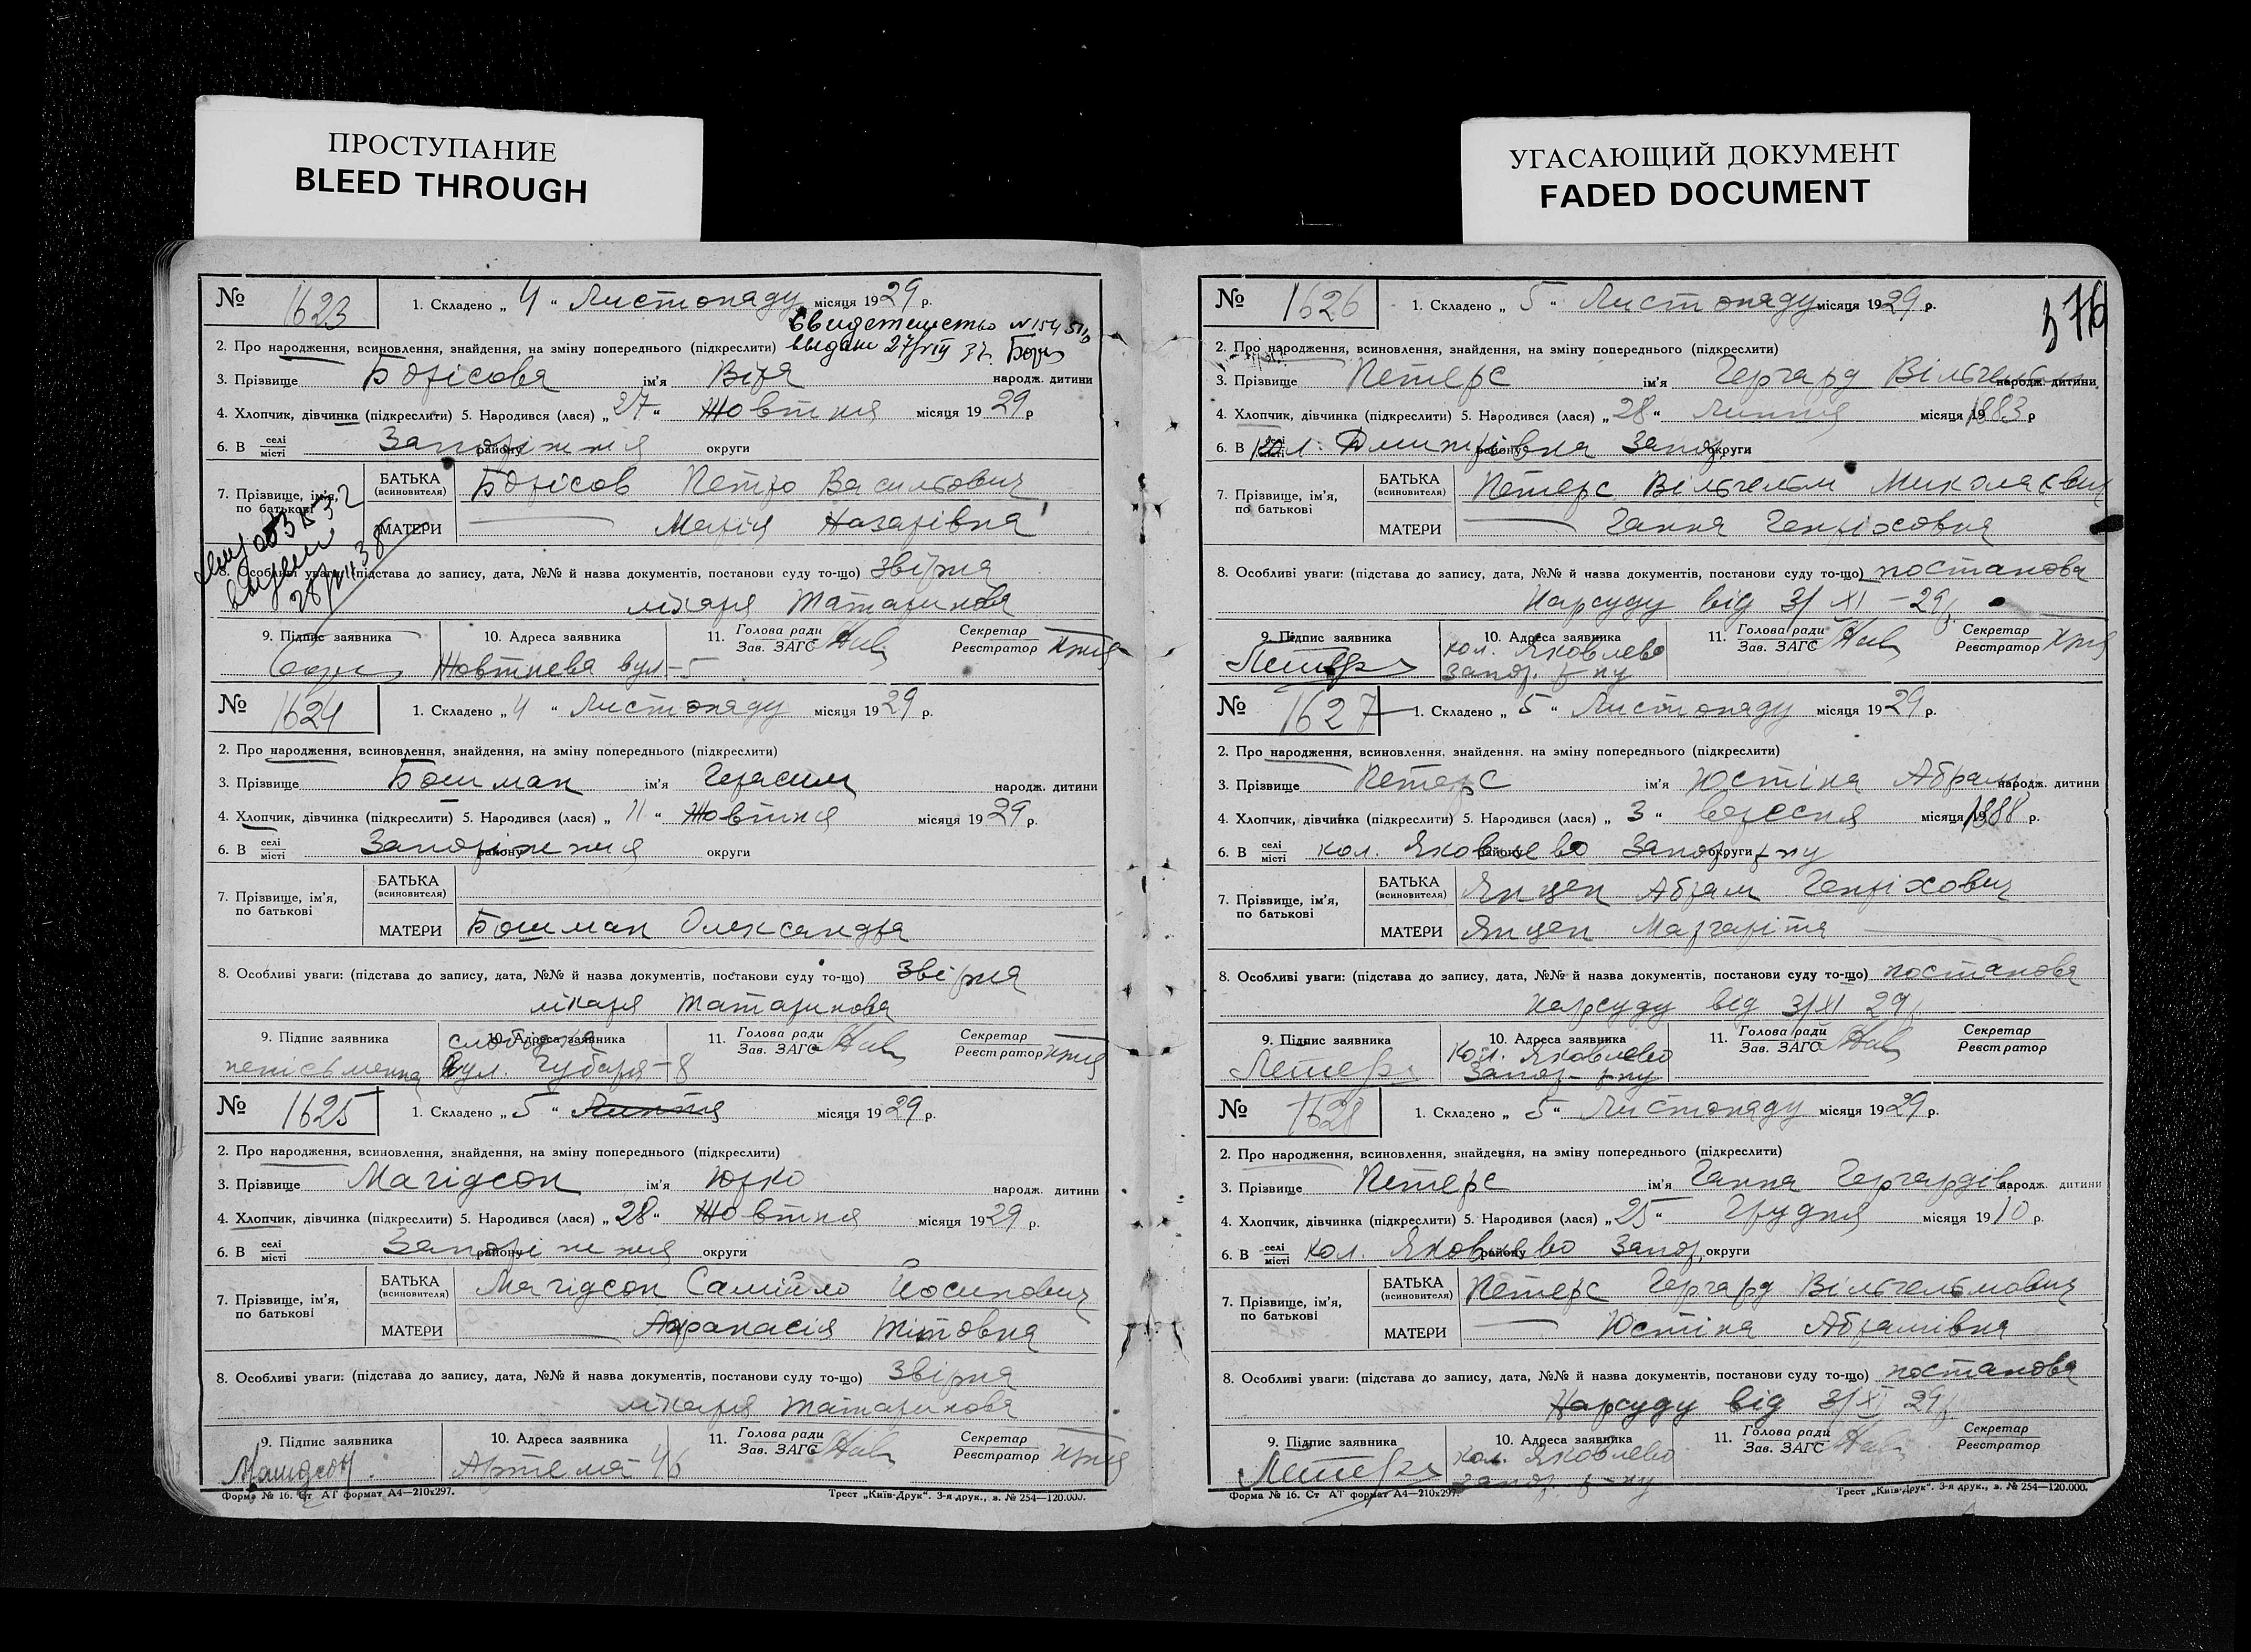 ПРОСТУПАНИЕ
BLEED THROUGH
УГАСАЮЩИЙ ДОКУМЕНТ
FADED DOCUMENT
№ 1623 1. Складено „ 4 “ Листопаду місяця 1929 р.
2. Про народження, всиновлення, знайдення, на зміну попереднього (підкреслити)
3. Прізвище Борісова ім'я Віра народж. дитини
4. Хлопчик, дівчинка (підкреслити) 5. Народився (лася) „ 27 “ Жовтня місяця 1929 р.
6. В селі місті Запоріжжя району округи
7. Прізвище, ім'я, по батькові БАТЬКА (всиновителя) Борісов Петро Васильович
МАТЕРИ Марія Назарівна
8. Особливі уваги: (підстава до запису, дата, №№ й назва документів, постанови суду то-що) Звірня
лікаря Татаринова
9. Підпис заявника 10. Адреса заявника Жовтнева вул-5 11. Голова ради Зав. ЗАГС Секретар Реєстратор
№ 1624 1. Складено „ 4 “ Листопаду місяця 1929 р.
2. Про народження, всиновлення, знайдення, на зміну попереднього (підкреслити)
3. Прізвище Бошман ім'я Герасим народж. дитини
4. Хлопчик, дівчинка (підкреслити) 5. Народився (лася) „ 11 “ Жовтня місяця 1929 р.
6. В селі місті Запоріжжя району округи
7. Прізвище, ім'я, по батькові БАТЬКА (всиновителя)
МАТЕРИ Бошман Олександра
8. Особливі уваги: (підстава до запису, дата, №№ й назва документів, постанови суду то-що) Звірня
лікаря Татаринова
9. Підпис заявника неписьменна 10. Адреса заявника слободка вул. Губаря-8 11. Голова ради Зав. ЗАГС Секретар Реєстратор
№ 1625 1. Складено „ 5 “ місяця 1929 р.
2. Про народження, всиновлення, знайдення, на зміну попереднього (підкреслити)
3. Прізвище Магідсон ім'я Юрко народж. дитини
4. Хлопчик, дівчинка (підкреслити) 5. Народився (лася) „ 28 “ Жовтня місяця 1929 р.
6. В селі місті Запоріжжя району округи
7. Прізвище, ім'я, по батькові БАТЬКА (всиновителя) Магідсон Самійло Йосипович
МАТЕРИ Афанасія Тітовна
8. Особливі уваги: (підстава до запису, дата, №№ й назва документів, постанови суду то-що) Звірня
лікаря Татаринова
9. Підпис заявника 10. Адреса заявника Артема 46 11. Голова ради Зав. ЗАГС Секретар Реєстратор
Форма № 16. Ст АТ формат А4—210х297. Трест „Київ-Друк“. 3-я друк., з. № 254—120.000.
376
№ 1626 1. Складено „ 5 “ Листопаду місяця 1929 р.
2. Про народження, всиновлення, знайдення, на зміну попереднього (підкреслити)
3. Прізвище Петерс ім'я Гергард Вільгельм народж. дитини
4. Хлопчик, дівчинка (підкреслити) 5. Народився (лася) „ 28 “ Липня місяця 1883 р
6. В селі місті кол. Дмитрівка Запор. району округи
7. Прізвище, ім'я, по батькові БАТЬКА (всиновителя) Петерс Вільгельм Миколаєвич
МАТЕРИ Ганна Генріховна
8. Особливі уваги: (підстава до запису, дата, №№ й назва документів, постанови суду то-що) постанова
Нарсуду від 3/XI - 29 р.
9. Підпис заявника Петерс 10. Адреса заявника кол. Яковлево Запор. р-ну 11. Голова ради Зав. ЗАГС Секретар Реєстратор
№ 1627 1. Складено „ 5 “ Листопаду місяця 1929 р.
2. Про народження, всиновлення, знайдення, на зміну попереднього (підкреслити)
3. Прізвище Петерс ім'я Юстіна Абрам. народж. дитини
4. Хлопчик, дівчинка (підкреслити) 5. Народився (лася) „ 3 “ вересня місяця 1888 р.
6. В селі місті кол. Яковлево Запор. р-ну району округи
7. Прізвище, ім'я, по батькові БАТЬКА (всиновителя) Янцен Абрам Генріхович
МАТЕРИ Янцен Маргаріта
8. Особливі уваги: (підстава до запису, дата, №№ й назва документів, постанови суду то-що) постанова
нарсуду від 3/XI 29 р.
9. Підпис заявника Петерс 10. Адреса заявника кол. Яковлево Запор. р-ну 11. Голова ради Зав. ЗАГС Секретар Реєстратор
№ 1628 1. Складено „ 5 “ Листопаду місяця 1929 р.
2. Про народження, всиновлення, знайдення, на зміну попереднього (підкреслити)
3. Прізвище Петерс ім'я Ганна Гергардів народж. дитини
4. Хлопчик, дівчинка (підкреслити) 5. Народився (лася) „ 25 “ Грудня місяця 1910 р.
6. В селі місті кол. Яковлево Запор. району округи
7. Прізвище, ім'я, по батькові БАТЬКА (всиновителя) Петерс Гергард Вільгельмович
МАТЕРИ Юстіна Абрамівна
8. Особливі уваги: (підстава до запису, дата, №№ й назва документів, постанови суду то-що) постанова
Нарсуду від 3/XI 29 р.
9. Підпис заявника Петерс 10. Адреса заявника кол. Яковлево Запор. р-ну 11. Голова ради Зав. ЗАГС Секретар Реєстратор
Форма № 16. Ст АТ формат А4—210х297. Трест „Київ-Друк“. 3-я друк., в. № 254—120.000.